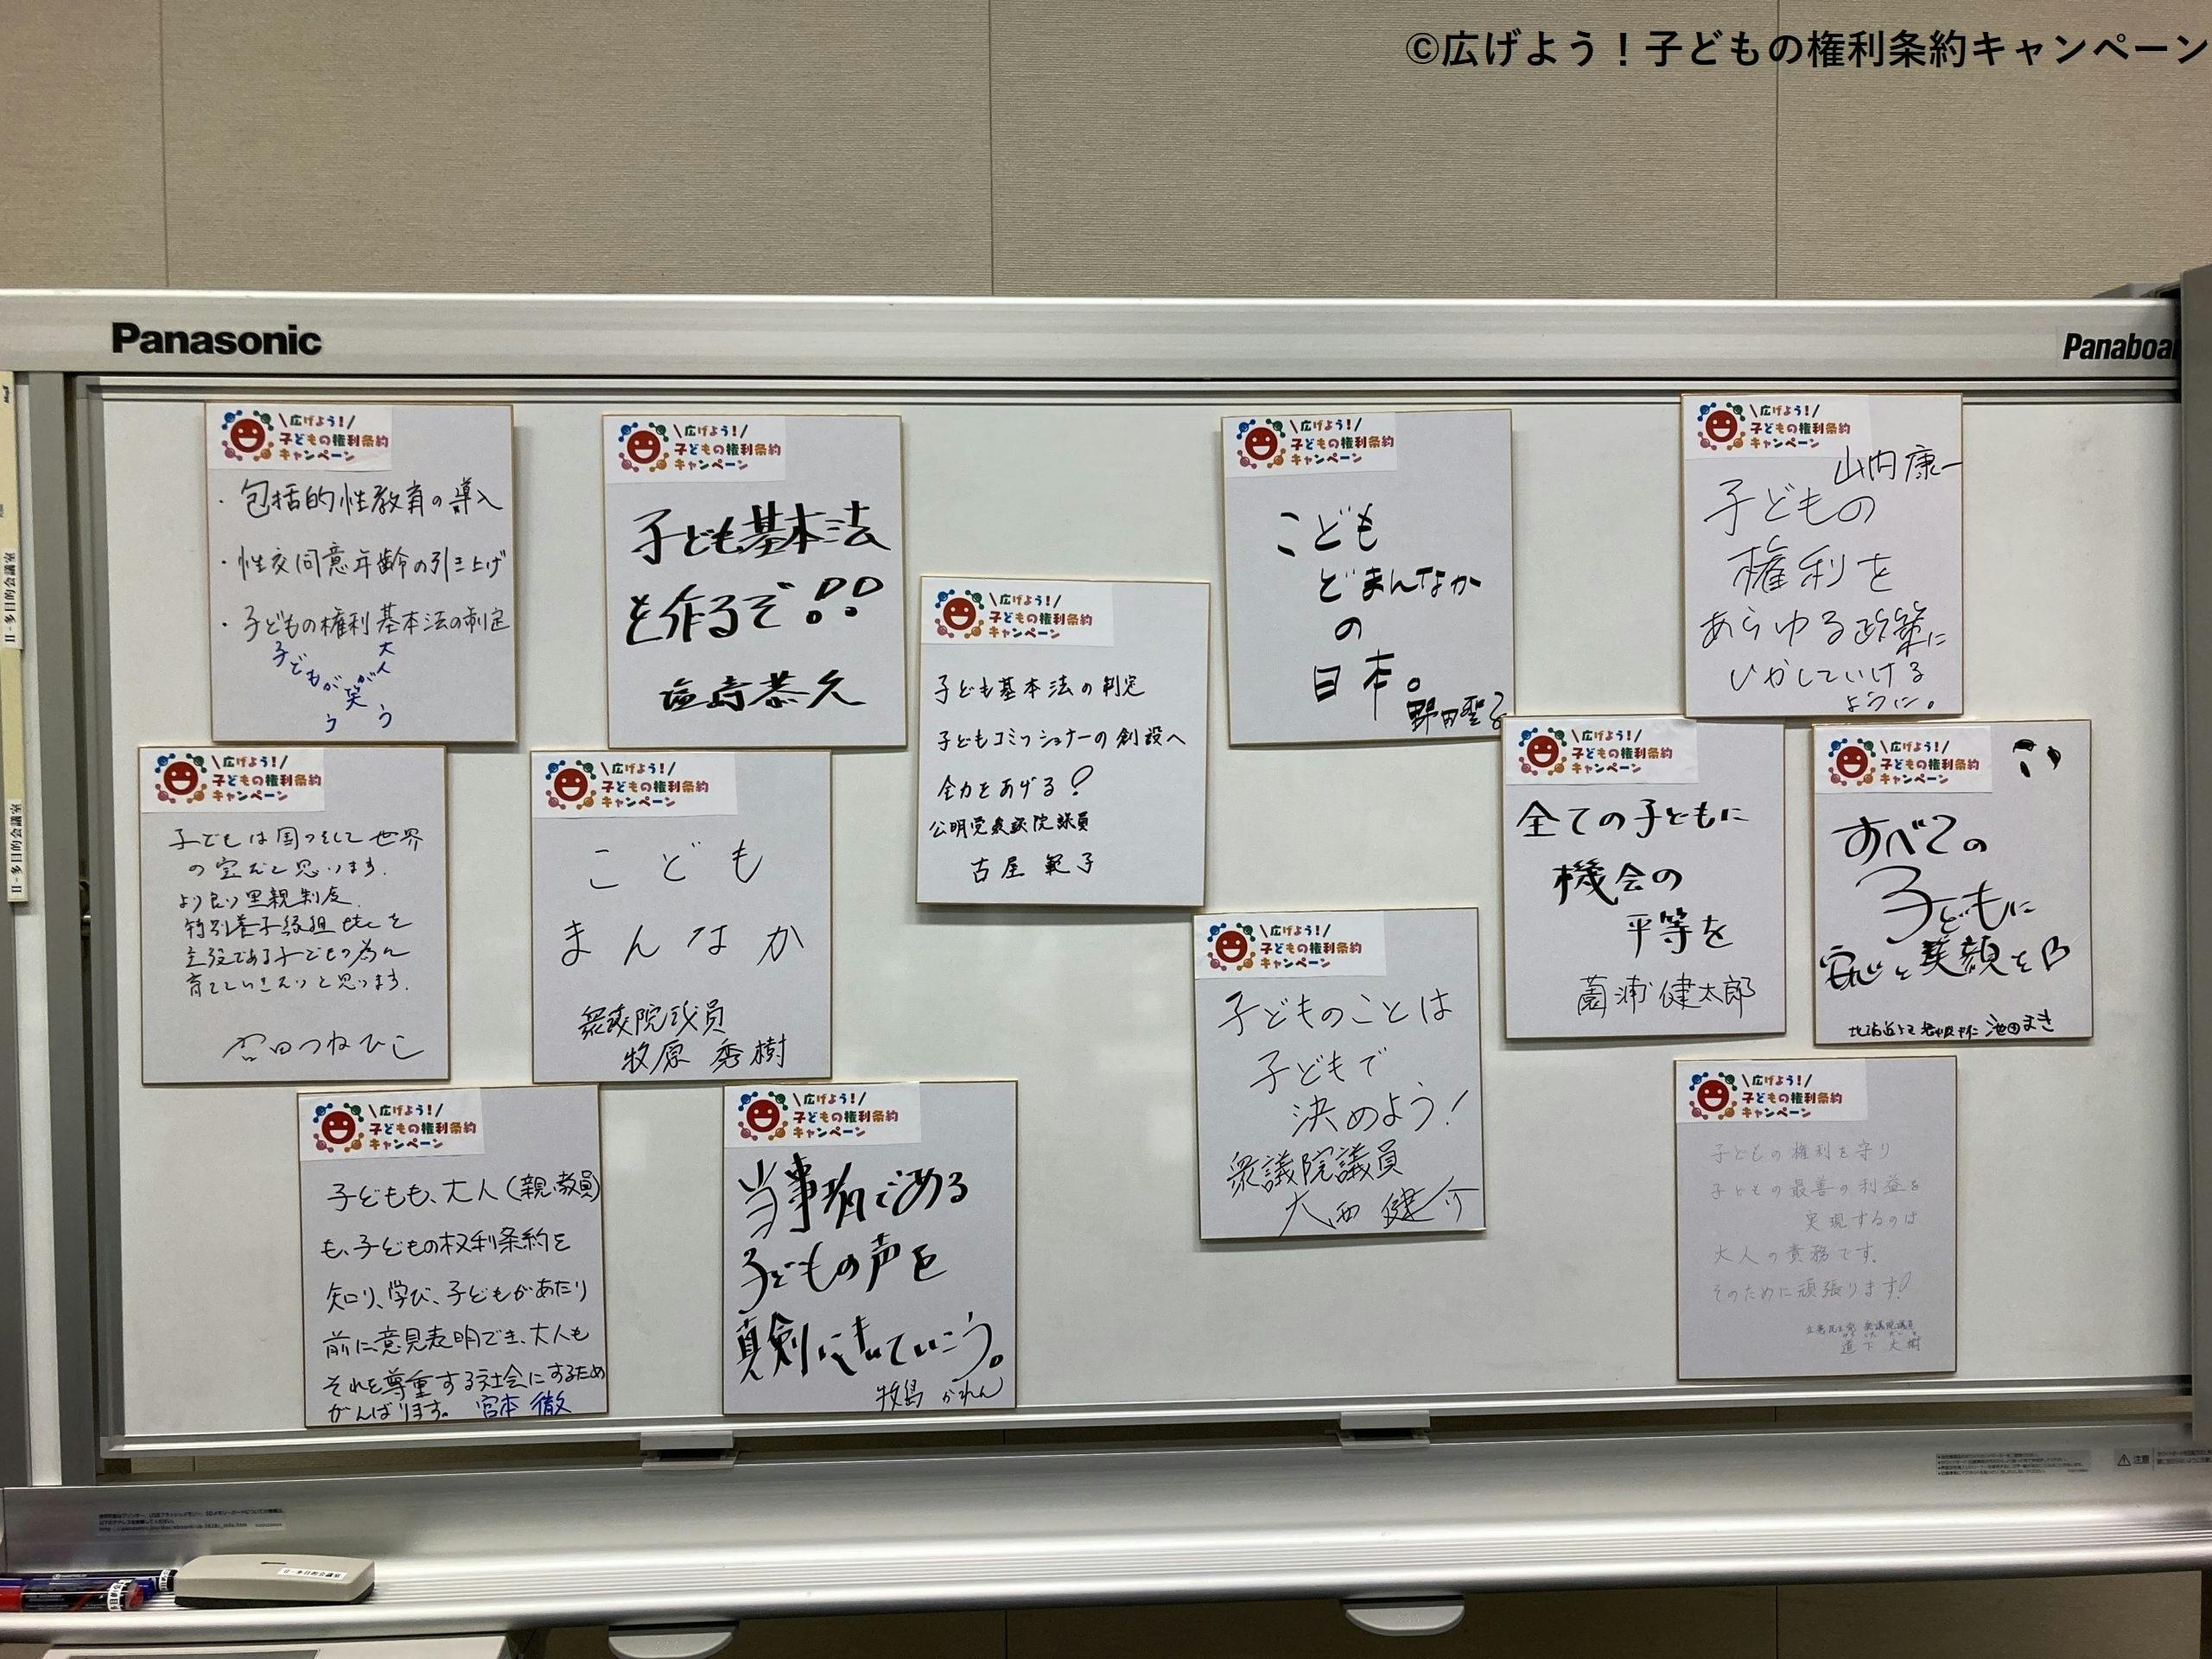 ©広げよう！子どもの権利条約キャンペーン
Panasonic
\広げよう!/
子どもの権利条約
キャンペーン
・包括的性教育の導入
・性交同意年齢の引き上げ
・子どもの権利基本法の制定
子どもが笑う
大人が笑う
\広げよう!/
子どもの権利条約
キャンペーン
子ども基本法
を作るぞ!!
塩崎恭久
\広げよう!/
子どもの権利条約
キャンペーン
子ども基本法の制定
子どもコミッショナーの創設へ
全力をあげる!
公明党衆議院議員
古屋 範子
\広げよう!/
子どもの権利条約
キャンペーン
こども
どまんなか
の
日本。
野田聖子
\広げよう!/
子どもの権利条約
キャンペーン
山内康一
子どもの
権利を
あらゆる政策に
いかしていける
ように。
\広げよう!/
子どもの権利条約
キャンペーン
子どもは国のそして世界
の宝だと思います.
より良い里親制度.
特別養子縁組 etc を
主役である子どもの為に
育てていきたいと思います.
\広げよう!/
子どもの権利条約
キャンペーン
こども
まんなか
衆議院議員
牧原 秀樹
\広げよう!/
子どもの権利条約
キャンペーン
全ての子どもに
機会の
平等を
薗浦健太郎
\広げよう!/
子どもの権利条約
キャンペーン
すべての
子どもに
安心と笑顔を
池田まき
\広げよう!/
子どもの権利条約
キャンペーン
子どものことは
子どもで
決めよう!
衆議院議員
大西 健介
\広げよう!/
子どもの権利条約
キャンペーン
子どもも、大人(親、教員)
も、子どもの权利条約を
知り、学び、子どもがあたり
前に意見表明でき、大人も
それを尊重する社会にするため
がんばります。 宮本 徹
\広げよう!/
子どもの権利条約
キャンペーン
当事者である
子どもの声を
真剣にきいていこう。
牧島 かれん
\広げよう!/
子どもの権利条約
キャンペーン
子どもの権利を守り
子どもの最善の利益を
実現するのは
大人の責務です.
そのために頑張ります!
立憲民主党 衆議院議員
道下 大樹
II-多目的会議室
II-多目的会議室
注意